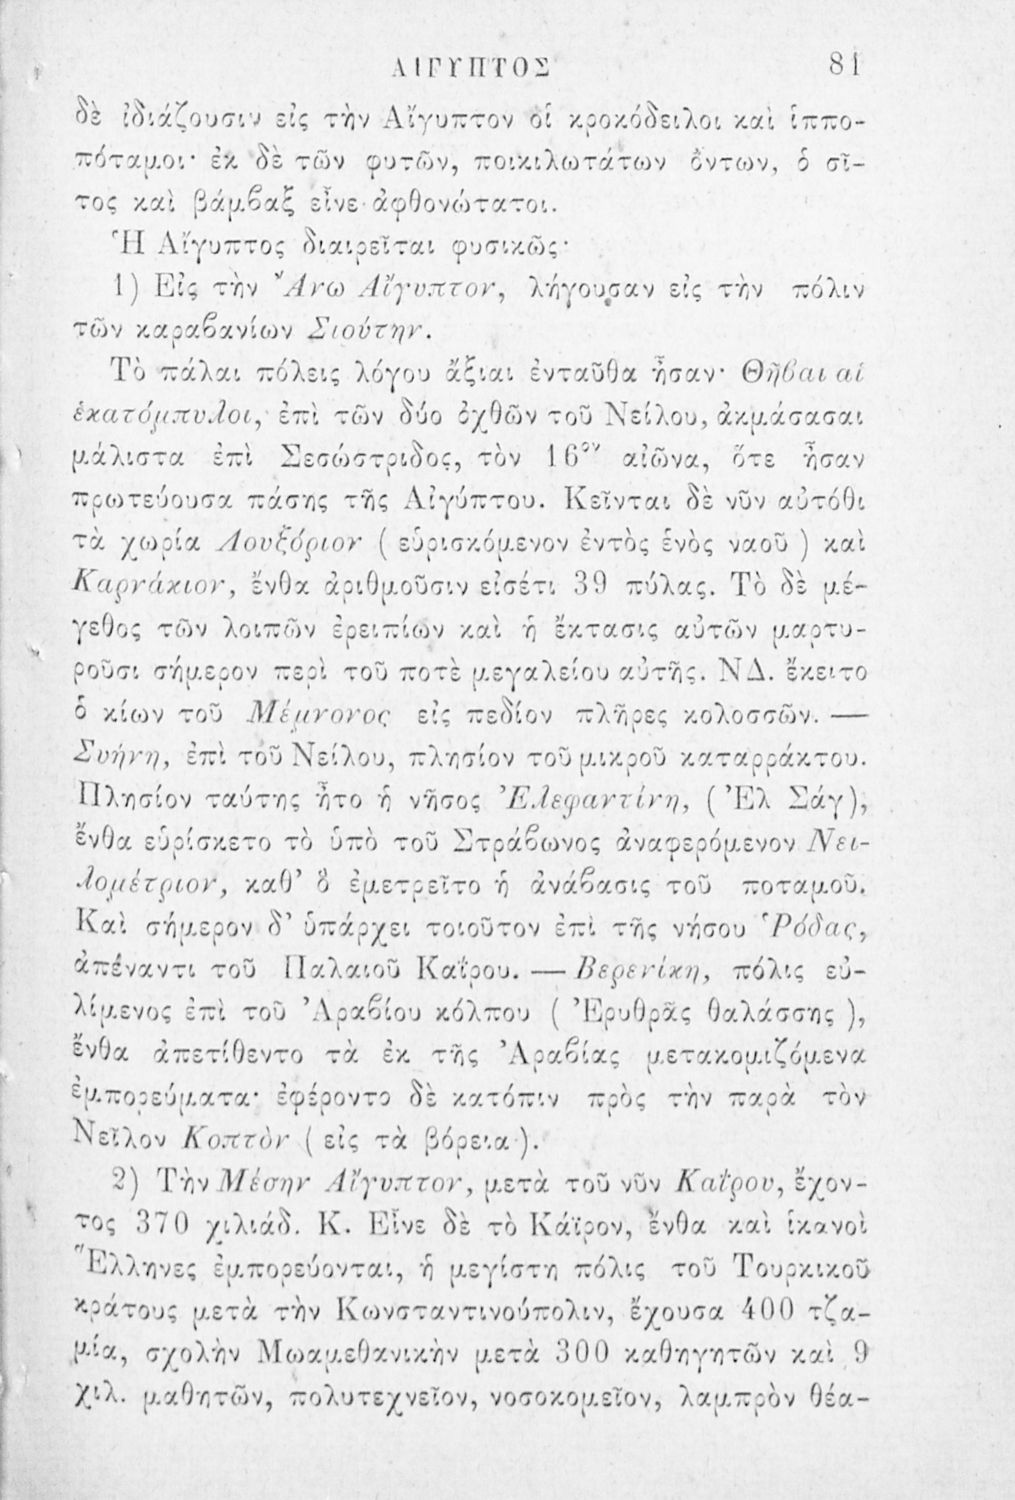 ΑΙΓΥΠΤΟΣ 81
δὲ ἰδιάζουσιν εἰς τὴν Αἴγυπτον οἱ κροκόδειλοι καὶ ἱππο-
πόταμοι· ἐκ δὲ τῶν φυτῶν, ποικιλωτάτων ὄντων, ὁ σῖ-
τος καὶ βάμβαξ εἶνε ἀφθονώτατοι.
Ἡ Αἴγυπτος διαιρεῖται φυσικῶς·
1) Εἰς τὴν Ἄνω Αἴγυπτον, λήγουσαν εἰς τὴν πόλιν
τῶν καραβανίων Σιούτην.
Τὸ πάλαι πόλεις λόγου ἄξιαι ἐνταῦθα ἦσαν· Θῆβαι αἱ
ἑκατόμπυλοι, ἐπὶ τῶν δύο ὀχθῶν τοῦ Νείλου, ἀκμάσασαι
μάλιστα ἐπὶ Σεσώστριδος, τὸν 16ον αἰῶνα, ὅτε ἦσαν
πρωτεύουσα πάσης τῆς Αἰγύπτου. Κεῖνται δὲ νῦν αὐτόθι
τὰ χωρία Λουξόριον ( εὑρισκόμενον ἐντὸς ἑνὸς ναοῦ ) καὶ
Καρνάκιον, ἔνθα ἀριθμοῦσιν εἰσέτι 39 πύλας. Τὸ δὲ μέ-
γεθος τῶν λοιπῶν ἐρειπίων καὶ ἡ ἔκτασις αὐτῶν μαρτυ-
ροῦσι σήμερον περὶ τοῦ ποτὲ μεγαλείου αὐτῆς. ΝΔ. ἔκειτο
ὁ κίων τοῦ Μέμνονος εἰς πεδίον πλῆρες κολοσσῶν. —
Συήνη, ἐπὶ τοῦ Νείλου, πλησίον τοῦ μικροῦ καταρράκτου.
Πλησίον ταύτης ἦτο ἡ νῆσος Ἐλεφαντίνη, ( Ἐλ Σάγ),
ἔνθα εὑρίσκετο τὸ ὑπὸ τοῦ Στράβωνος ἀναφερόμενον Νει-
λομέτριον, καθ’ ὃ ἐμετρεῖτο ἡ ἀνάβασις τοῦ ποταμοῦ.
Καὶ σήμερον δ’ ὑπάρχει τοιοῦτον ἐπὶ τῆς νήσου Ῥόδας,
ἀπέναντι τοῦ Παλαιοῦ Καΐρου. — Βερενίκη, πόλις εὐ-
λίμενος ἐπὶ τοῦ Ἀραβίου κόλπου ( Ἐρυθρᾶς θαλάσσης ),
ἔνθα ἀπετίθεντο τὰ ἐκ τῆς Ἀραβίας μετακομιζόμενα
ἐμπορεύματα· ἐφέροντο δὲ κατόπιν πρὸς τὴν παρὰ τὸν
Νεῖλον Κοπτὸν ( εἰς τὰ βόρεια ).
2) Τὴν Μέσην Αἴγυπτον, μετὰ τοῦ νῦν Καΐρου, ἔχον-
τος 370 χιλιάδ. Κ. Εἶνε δὲ τὸ Κάϊρον, ἔνθα καὶ ἱκανοὶ
Ἕλληνες ἐμπορεύονται, ἡ μεγίστη πόλις τοῦ Τουρκικοῦ
κράτους μετὰ τὴν Κωνσταντινούπολιν, ἔχουσα 400 τζα-
μία, σχολὴν Μωαμεθανικὴν μετὰ 300 καθηγητῶν καὶ 9
χιλ. μαθητῶν, πολυτεχνεῖον, νοσοκομεῖον, λαμπρὸν θέα-